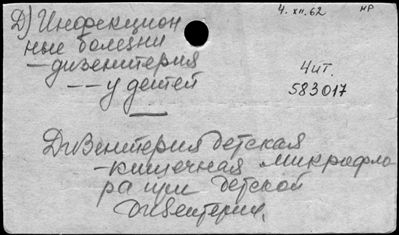 4.XII.62 НР
Д) Инфекцион
ные болезни
— дизентерия
— — у детей
Чит.
583017
Дизентерия детская
— кишечная микрофло
ра при детской
дизентерии.